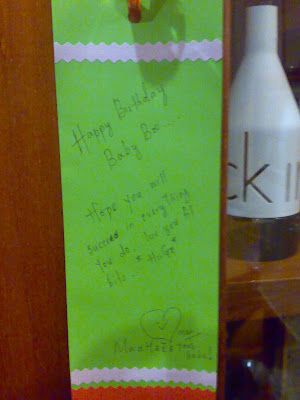 Happy Birthday
Baby Boo....
Hope you will
succeed in everything
you do. Love you
bits... * Hugs *
ck in